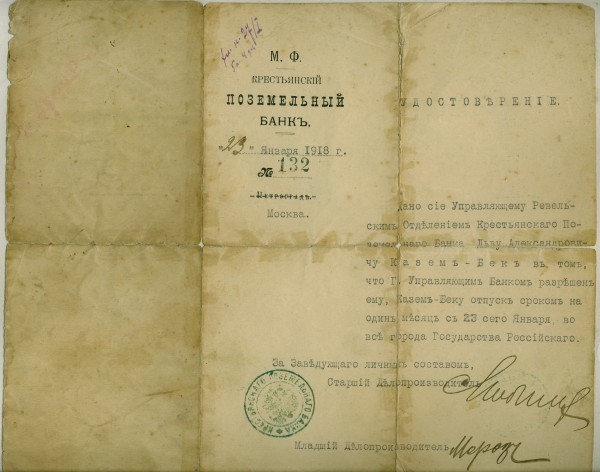 М. Ф.
КРЕСТЬЯНСКІЙ
ПОЗЕМЕЛЬНЫЙ
БАНКЪ.
„23" Января 1918 г.
№ 132
Петроградъ.
Москва.
УДОСТОВѢРЕНІЕ.
Дано сіе Управляющему Ревель-
скимъ Отдѣленіемъ Крестьянскаго По-
земельнаго Банка Льву Александрови-
чу Каземъ-Бекъ въ томъ,
что Г. Управляющимъ Банкомъ разрѣшенъ
ему, Каземъ-Беку отпускъ срокомъ на
одинъ мѣсяцъ съ 23 сего Января, во
всѣ города Государства Россійскаго.
За Завѣдующаго личнымъ составомъ,
Старшій Дѣлопроизводитель
КРЕСТЬЯНСКАГО ПОЗЕМЕЛЬНАГО БАНКА
Младшій Дѣлопроизводитель Морозъ